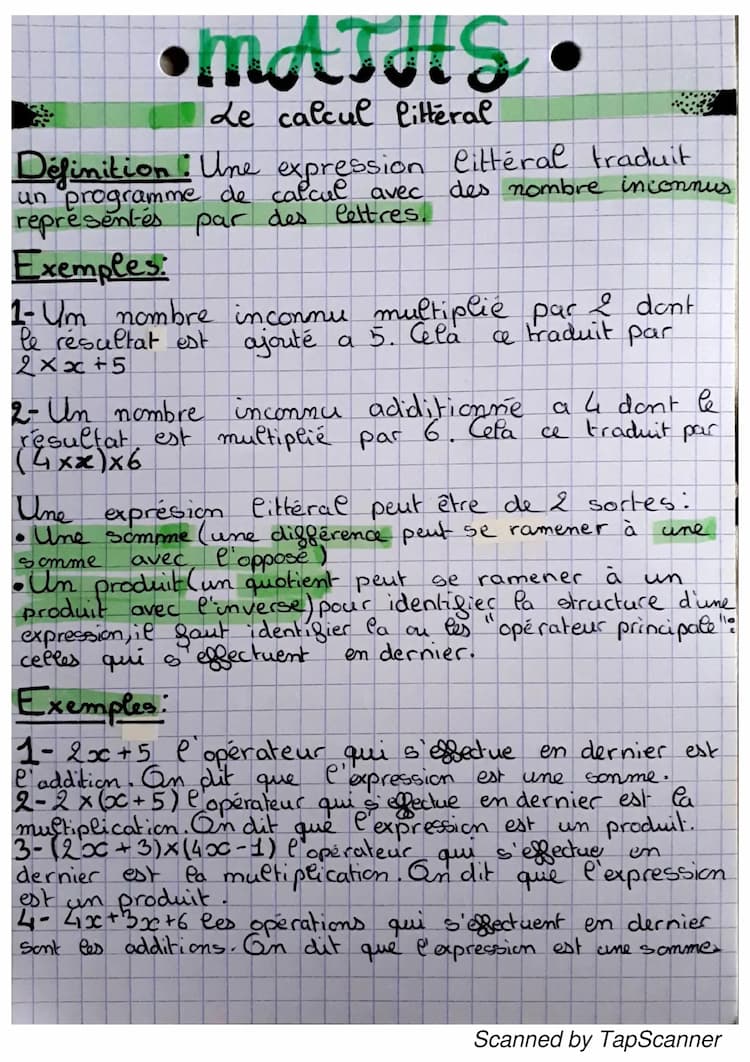 MATHS
Le calcul littéral
Définition : Une expression littéral traduit
un programme de calcul avec des nombre inconnus
représentés par des lettres.
Exemples:
1- Um nombre inconnu multiplié par 2 dont
le résultat est ajouté a 5. Cela ce traduit par
2×x+5
2- Un nombre inconnu adiditionné a 4 dont le
résultat est multiplié par 6. Cela ce traduit par
(4×x)×6
Une exprésion littéral peut être de 2 sortes:
• Une somme (une différence peut se ramener à une
somme avec l'opposé)
• Un produit (un quotient peut se ramener à un
produit avec l'inverse) pour identifier la structure d'une
expression, il faut identifier la ou les "opérateur principale":
celles qui s'effectuent en dernier.
Exemples:
1- 2x+5 l'opérateur qui s'effectue en dernier est
l'addition. On dit que l'expression est une somme.
2- 2×(x+5) l'opérateur qui s'effectue en dernier est la
multiplication. On dit que l'expression est un produit.
3- (2x+3)×(4x-1) l'opérateur qui s'effectue en
dernier est la multiplication. On dit que l'expression
est un produit.
4- 4x+3x+6 les opérations qui s'effectuent en dernier
sont les additions. On dit que l'expression est une somme.
Scanned by TapScanner